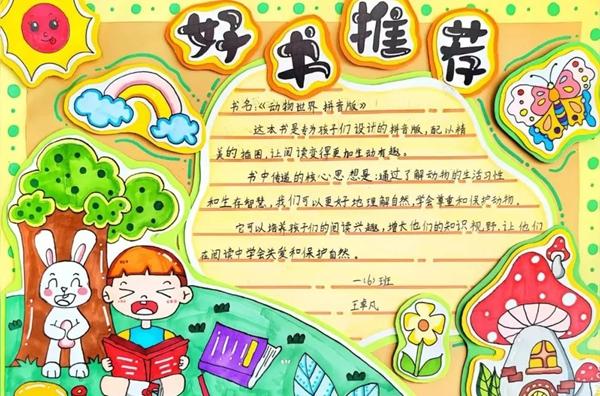 好书推荐
书名:《动物世界 拼音版》
这本书是专为孩子们设计的拼音版,配以精
美的插图,让阅读变得更加生动有趣。
书中传递的核心思想是:通过了解动物的生活习性
和生存智慧,我们可以更好地理解自然,学会尊重和保护动物。
它可以培养孩子们的阅读兴趣,增长他们的知识视野,让他们
在阅读中学会关爱和保护自然。
一(6)班
王卓凡